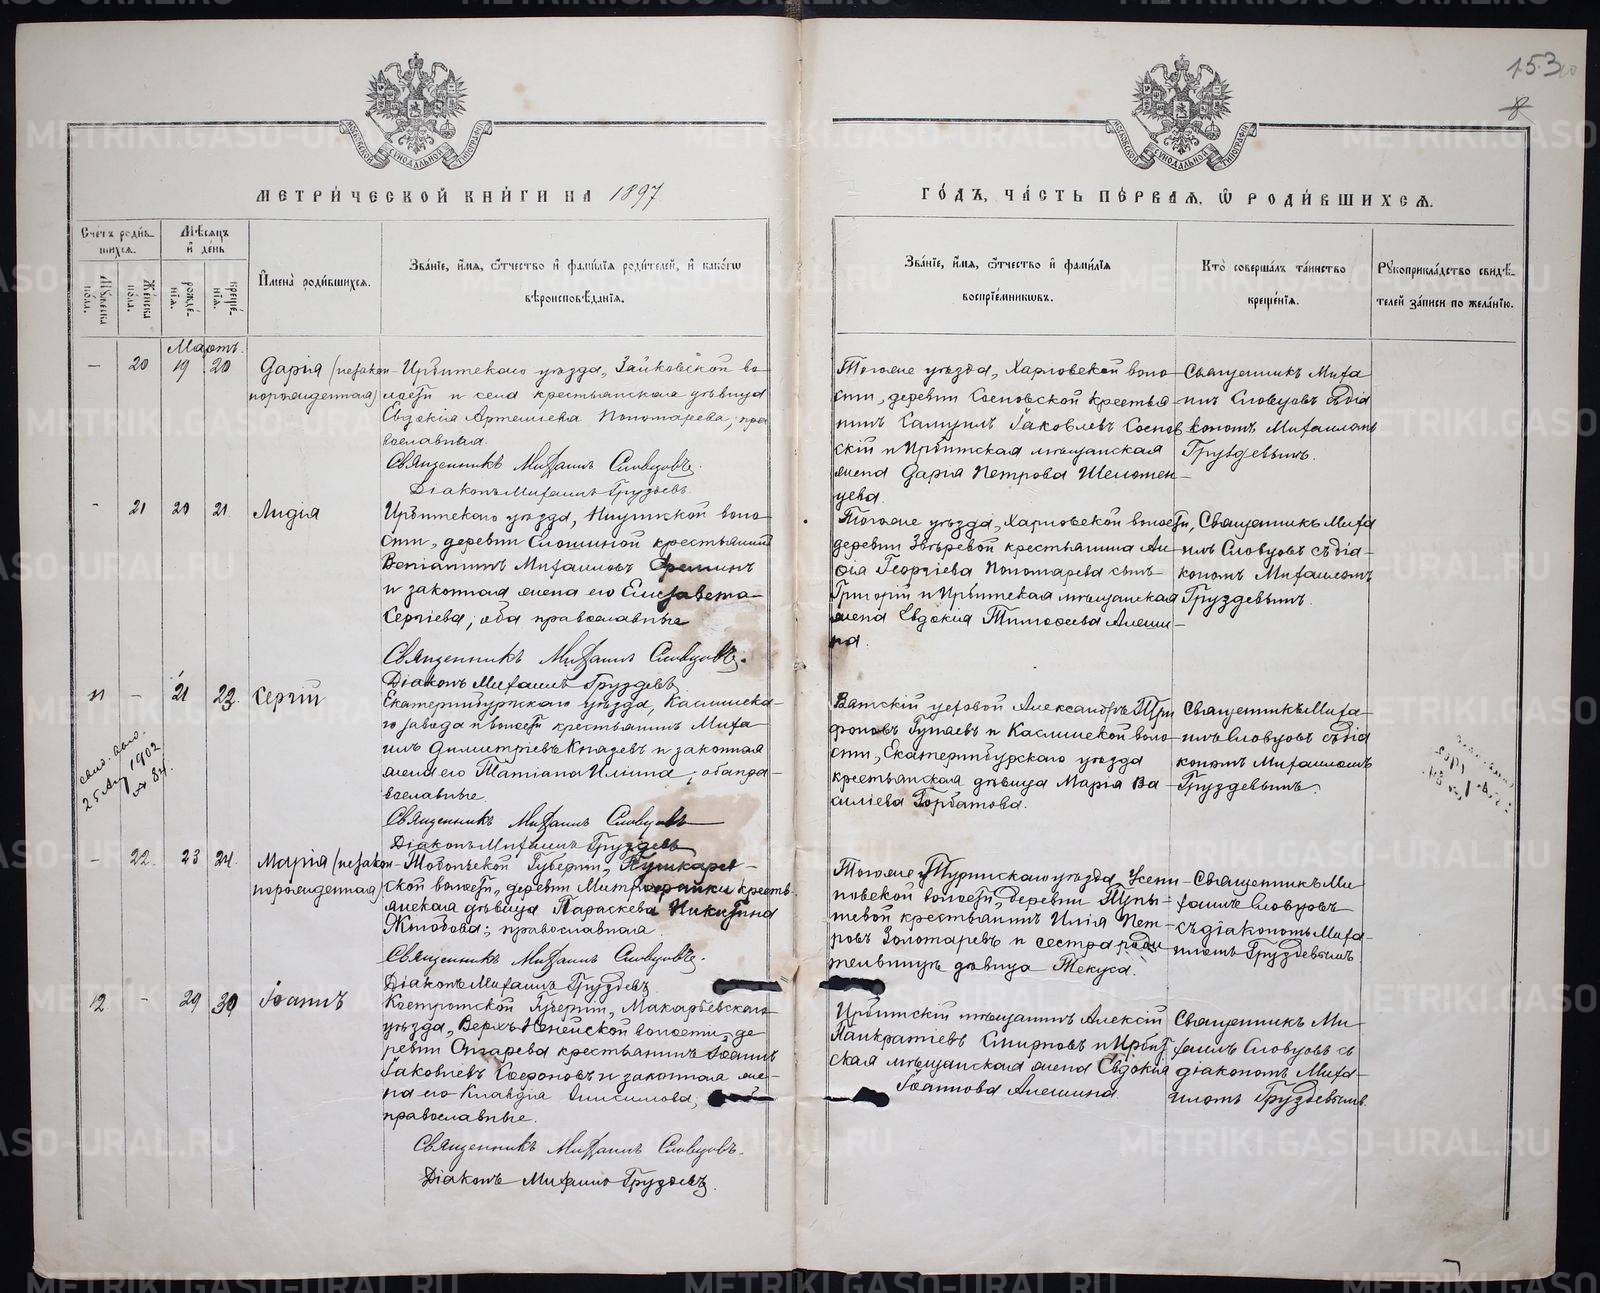 153
МЕТРИЧЕСКОЙ КНИГИ НА 1897
ГОДЪ, ЧАСТЬ ПЕРВАЯ, Ѿ РОДИВШИХСЯ.
Счетъ родившихся.
Мужеска пола.
Женска пола.
Мѣсяцъ и день
рожденія.
крещенія.
Имена родившихся.
Званіе, имя, ѿтчество и фамилія родителей, и какогѡ
вѣроисповѣданія.
Званіе, имя, ѿтчество и фамилія
воспріемниковъ.
Кто совершалъ таинство
крещенія.
Рукоприкладство свидѣ-
телей записи по желанію.
Мартъ.
— 20 19 20
Дарія (незакон-
норожденная)
Ирбитскаго уѣзда, Зайковской во-
лости и села крестьянская дѣвица
Евдокія Артемиева Пономарева, пра
вославная.
Священникъ Михаилъ Словцовъ.
Діаконъ Михаилъ Груздевъ
Тогоже уѣзда, Харловской воло-
сти, деревни Сосновской крестья-
нинъ Самуилъ Іаковлевъ Соснов
скій и Ирбитская мѣщанская
жена Дарія Петрова Шеломен-
цева.
Священникъ Миха
илъ Словцовъ съ діа
кономъ Михаиломъ
Груздевымъ.
- 21 20 21
Лидія
Ирбитскаго уѣзда, Ницинской воло-
сти, деревни крестьянинъ
Веніаминъ Михаиловъ Ереминъ
и законная жена его Елисавета
Сергіева, оба православные
Священникъ Михаилъ Словцовъ.
Діаконъ Михаилъ Груздевъ
Тогоже уѣзда, Харловской волости,
деревни Звѣревой крестьянина
Георгіева Пономарева сынъ
Григорій и Ирбитская мѣщанская
жена Евдокія Тимофеева Алеши-
на.
Священникъ Миха
илъ Словцовъ съ діа-
кономъ Михаиломъ
Груздевымъ.
11 - 21 23
Сергій
Екатеринбургскаго уѣзда, Каслинска-
го завода и волости крестьянинъ Миха-
илъ Димитріевъ Князевъ и законная
жена его Татіана Иліина, оба пра-
вославные.
Священникъ Михаилъ Словцовъ
Діаконъ Михаилъ Груздевъ
Вятскій цеховой Александръ Три
фоновъ и Каслинской воло-
сти, Екатеринбургскаго уѣзда
крестьянская дѣвица Марія Ва
силіева Горбатова.
Священникъ Миха-
илъ Словцовъ съ діа
кономъ Михаиломъ
Груздевымъ.
1902
№ 84.
- 22. 23 24
Марія (незакон-
норожденная)
Тобольской Губерніи,
ской волости, деревни кресть-
янская дѣвица Параскева Никитина
православная
Священникъ Михаилъ Словцовъ.
Діаконъ Михаилъ Груздевъ
Тогоже Туринскаго уѣзда, Усени-
новской волости, деревни
крестьянинъ Илія Пет-
ровъ Золотаревъ и сестра роди
тельницы дѣвица Текуса.
Священникъ Ми
хаилъ Словцовъ
съ діакономъ Миха-
иломъ Груздевымъ
12 - 29 30
Іоаннъ
Костромской Губерніи, Макарьевскаго
уѣзда, волости, де-
ревни Огарева крестьянинъ Іоаннъ
Іаковлевъ и законная же-
на его Клавдіа Онисимова,
православные.
Священникъ Михаилъ Словцовъ.
Діаконъ Михаилъ Груздевъ.
Ирбитскій мѣщанинъ Алексій
Панкратіевъ Смирновъ и Ирбит
ская мѣщанская жена Евдокія
Іоаннова Алешина
Священникъ Ми-
хаилъ Словцовъ съ
діакономъ Миха-
иломъ Груздевымъ.
METRIKI.GASO-URAL.RU